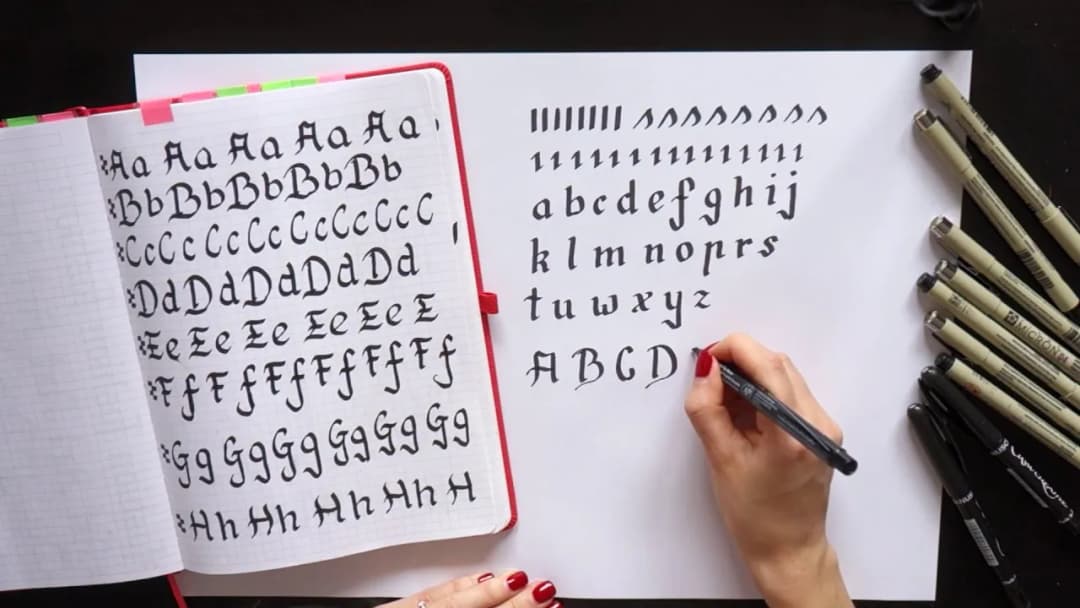 Aa Aa Aa Aa Aa
Bb Bb Bb Bb Bb
Cc Cc Cc Cc Cc Cc Cc C
Dd Dd Dd Dd Dd
Ee Ee Ee Ee Ee E
Ff Ff Ff Ff Ff Ff
Gg Gg Gg Gg Gg Gg
Hh Hh Hh Hh H
a b c d e f g h i j
k l m n o p r s
t u w x y z
A B C D
MICRON